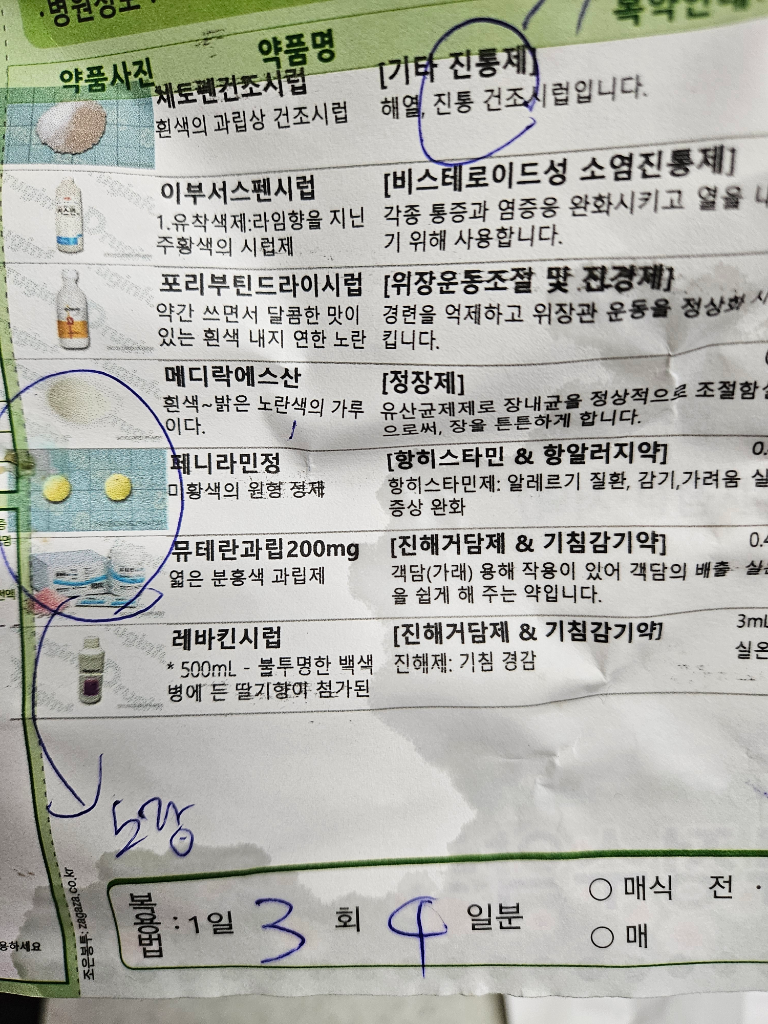 ·병원정보
복약안내
약품사진 약품명
세토펜건조시럽 [기타 진통제]
흰색의 과립상 건조시럽 해열, 진통 건조시럽입니다.
이부서스펜시럽 [비스테로이드성 소염진통제]
1.유착색제:라임향을 지닌 각종 통증과 염증응 완화시키고 열을 내
주황색의 시럽제 기 위해 사용합니다.
포리부틴드라이시럽 [위장운동조절 및 진경제]
약간 쓰면서 달콤한 맛이 경련을 억제하고 위장관 운동을 정상화 시
있는 흰색 내지 연한 노란 킵니다.
메디락에스산 [정장제]
흰색~밝은 노란색의 가루 유산균제제로 장내균을 정상적으로 조절함
이다. 으로써, 장을 튼튼하게 합니다.
페니라민정 [항히스타민 & 항알러지약] 0.
미황색의 원형 정제 항히스타민제: 알레르기 질환, 감기,가려움 실
증상 완화
뮤테란과립200mg [진해거담제 & 기침감기약] 0.4
엷은 분홍색 과립제 객담(가래) 용해 작용이 있어 객담의 배출 실온
을 쉽게 해 주는 약입니다.
레바킨시럽 [진해거담제 & 기침감기약] 3mL
* 500mL - 불투명한 백색 진해제: 기침 경감 실온
병에 든 딸기향이 첨가된
복용법 : 1일 3 회 4 일분 ○ 매식 전 ·
○ 매
조은봉투: zagaza.co.kr
용하세요